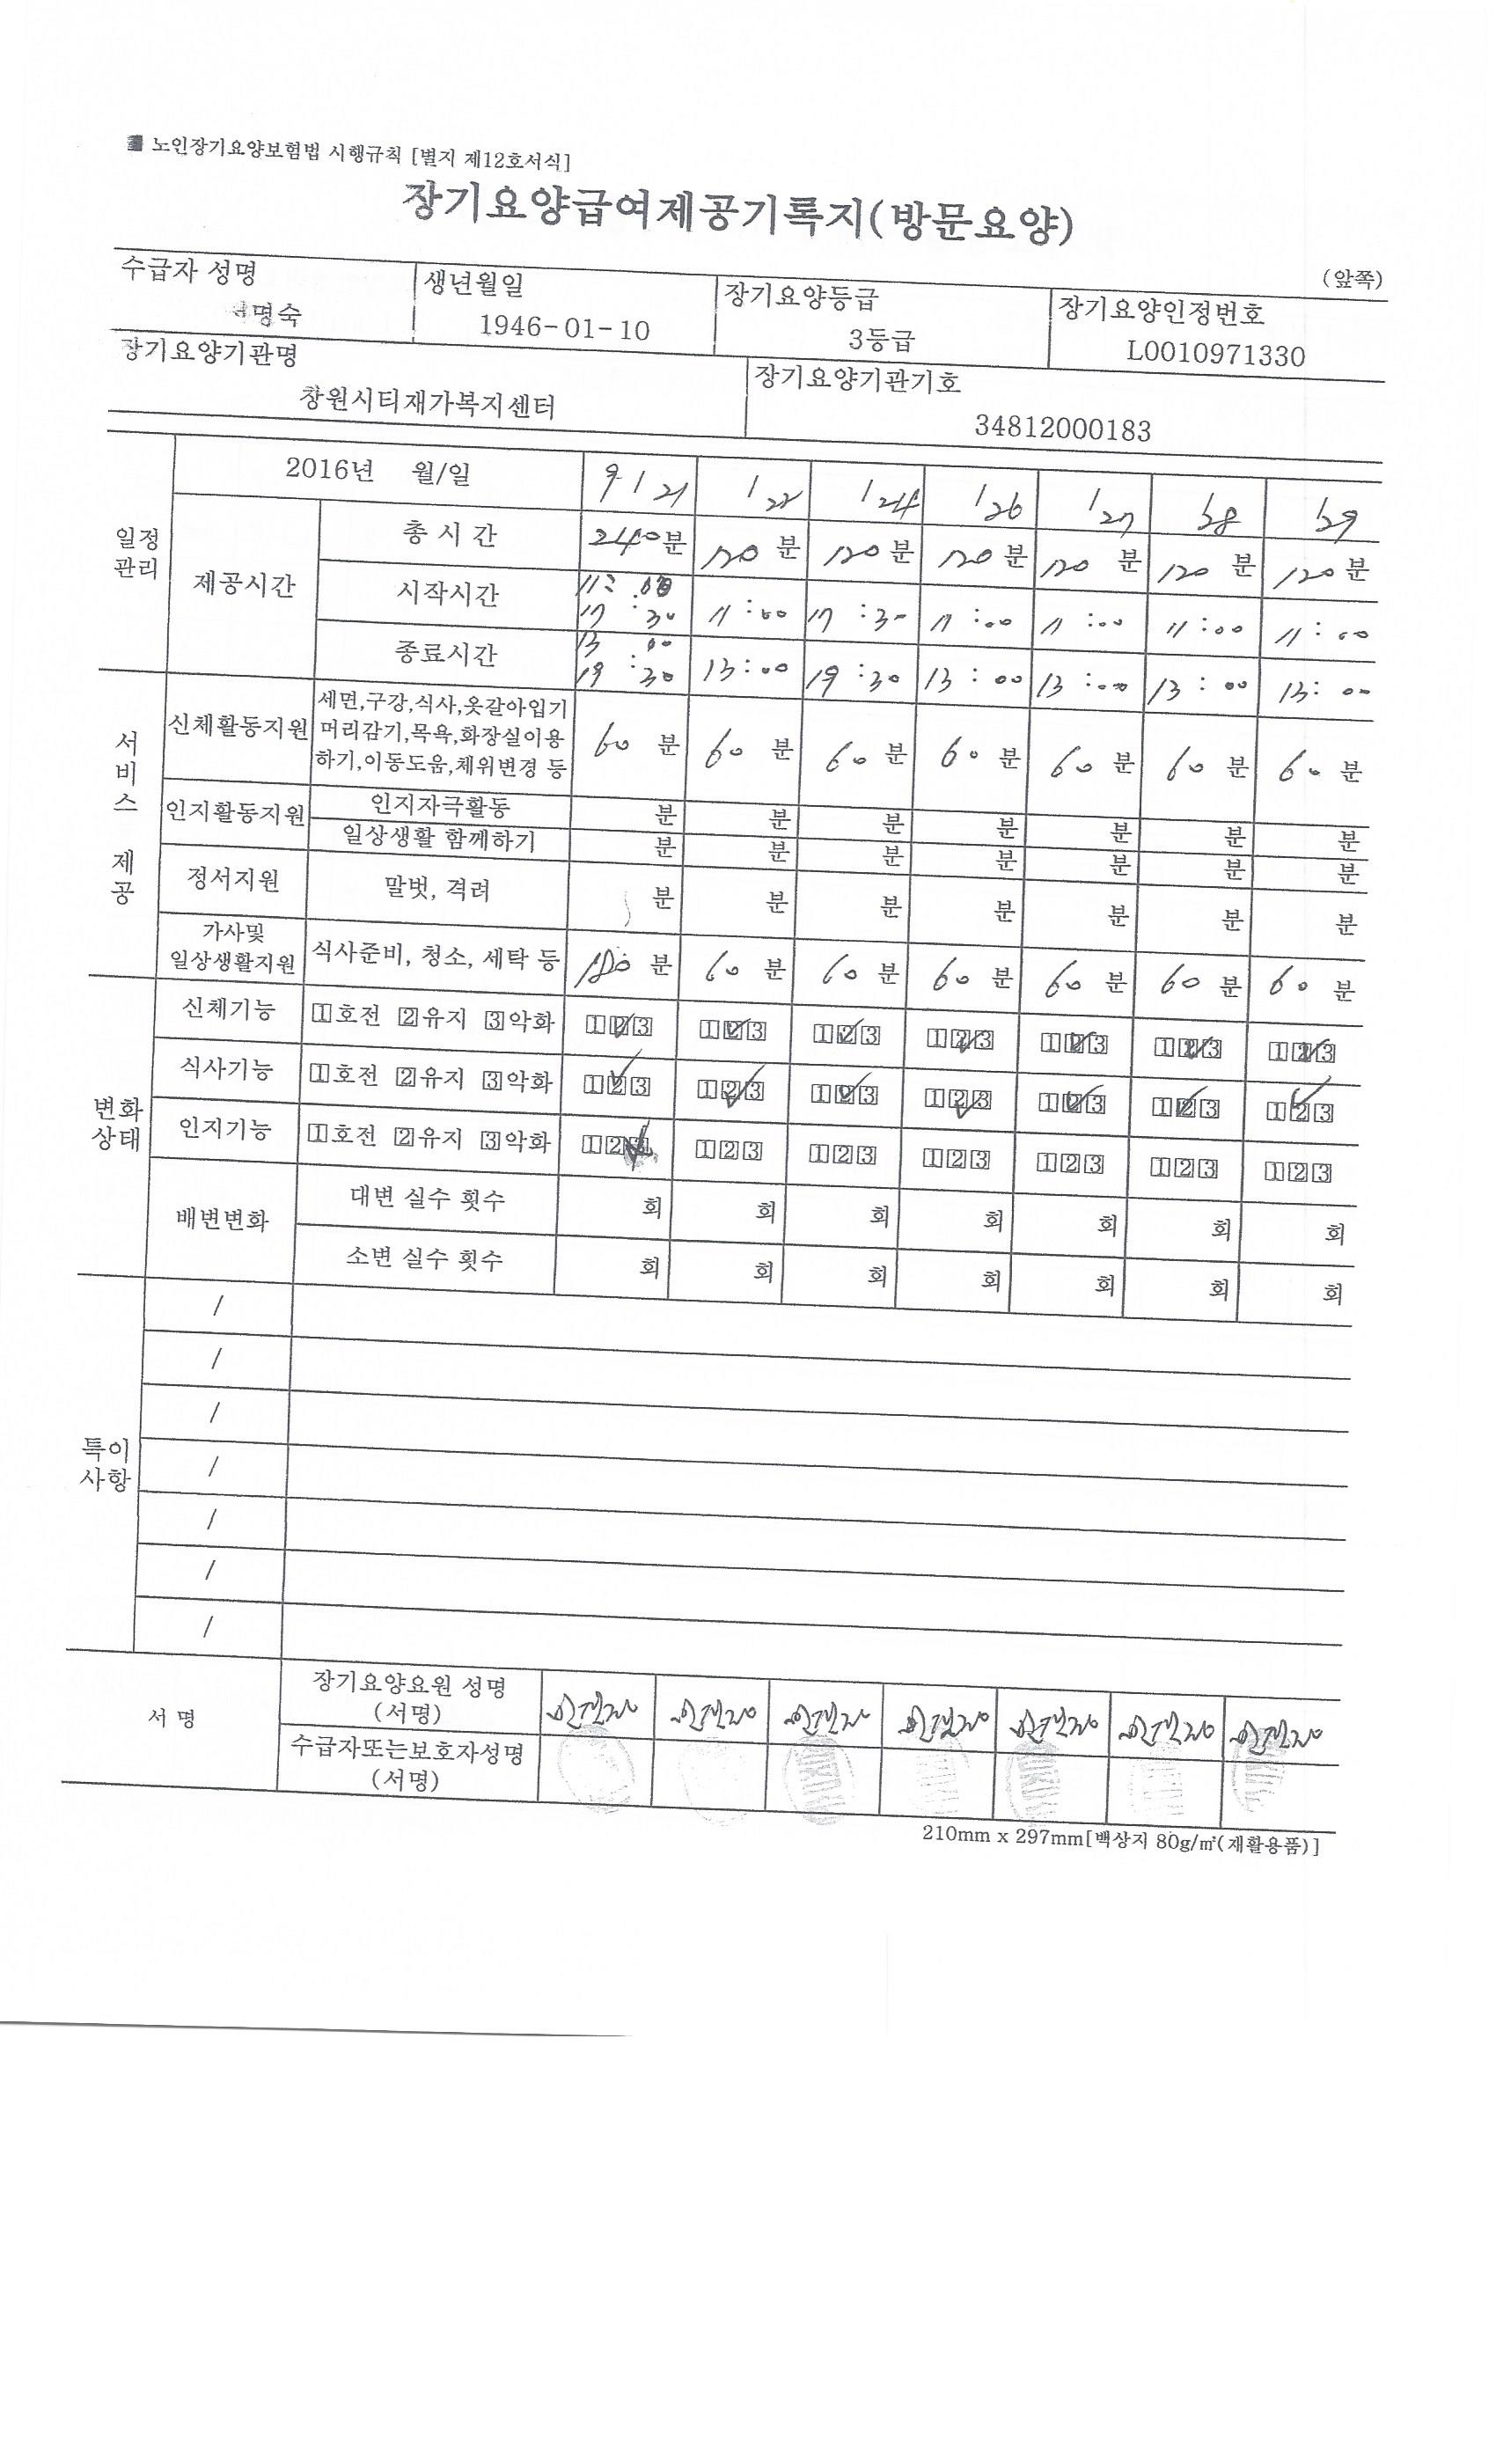 노인장기요양보험법 시행규칙 [별지 제12호서식]
장기요양급여제공기록지(방문요양)
(앞쪽)
수급자 성명 생년월일 장기요양등급 장기요양인정번호
명숙 1946-01-10 3등급 L0010971330
장기요양기관명 장기요양기관기호
창원시티재가복지센터 34812000183
일정관리 2016년 월/일 9/21 /22 /24 /26 /27 /28 /29
제공시간 총 시 간 240분 120분 120분 120분 120분 120분 120분
시작시간 11:00 17:30 11:00 17:30 11:00 11:00 11:00 11:00
종료시간 13:00 19:30 13:00 19:30 13:00 13:00 13:00 13:00
서비스 제공
신체활동지원 세면,구강,식사,옷갈아입기 머리감기,목욕,화장실이용하기,이동도움,체위변경 등 60분 60분 60분 60분 60분 60분 60분
인지활동지원 인지자극활동 분 분 분 분 분 분 분
일상생활 함께하기 분 분 분 분 분 분 분
정서지원 말벗, 격려 분 분 분 분 분 분 분
가사및 일상생활지원 식사준비, 청소, 세탁 등 180분 60분 60분 60분 60분 60분 60분
변화상태
신체기능 1호전 2유지 3악화 123 123 123 123 123 123 123
식사기능 1호전 2유지 3악화 123 123 123 123 123 123 123
인지기능 1호전 2유지 3악화 123 123 123 123 123 123 123
배변변화 대변 실수 횟수 회 회 회 회 회 회 회
소변 실수 횟수 회 회 회 회 회 회 회
특이사항
/
/
/
/
/
/
/
서 명 장기요양요원 성명 (서명)
수급자또는보호자성명 (서명)
210mm x 297mm[백상지 80g/㎡(재활용품)]